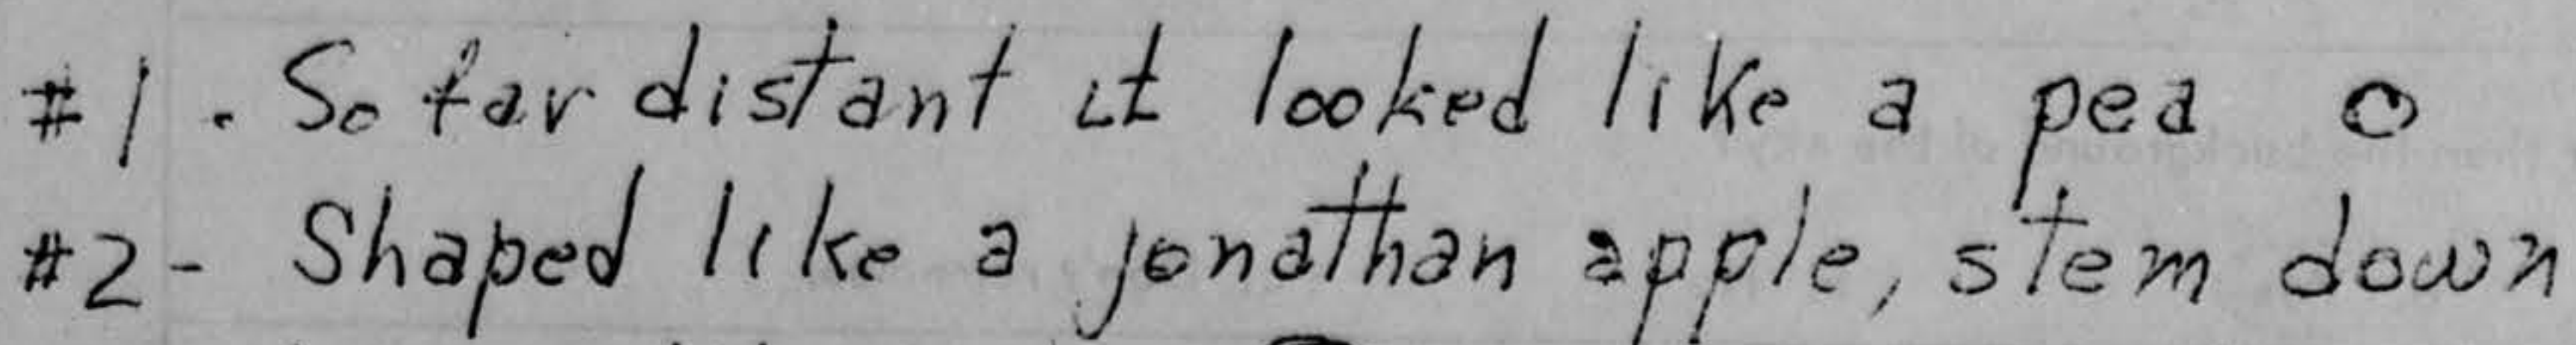 #1. So far distant it looked like a pea o
#2- Shaped like a jonathan apple, stem down